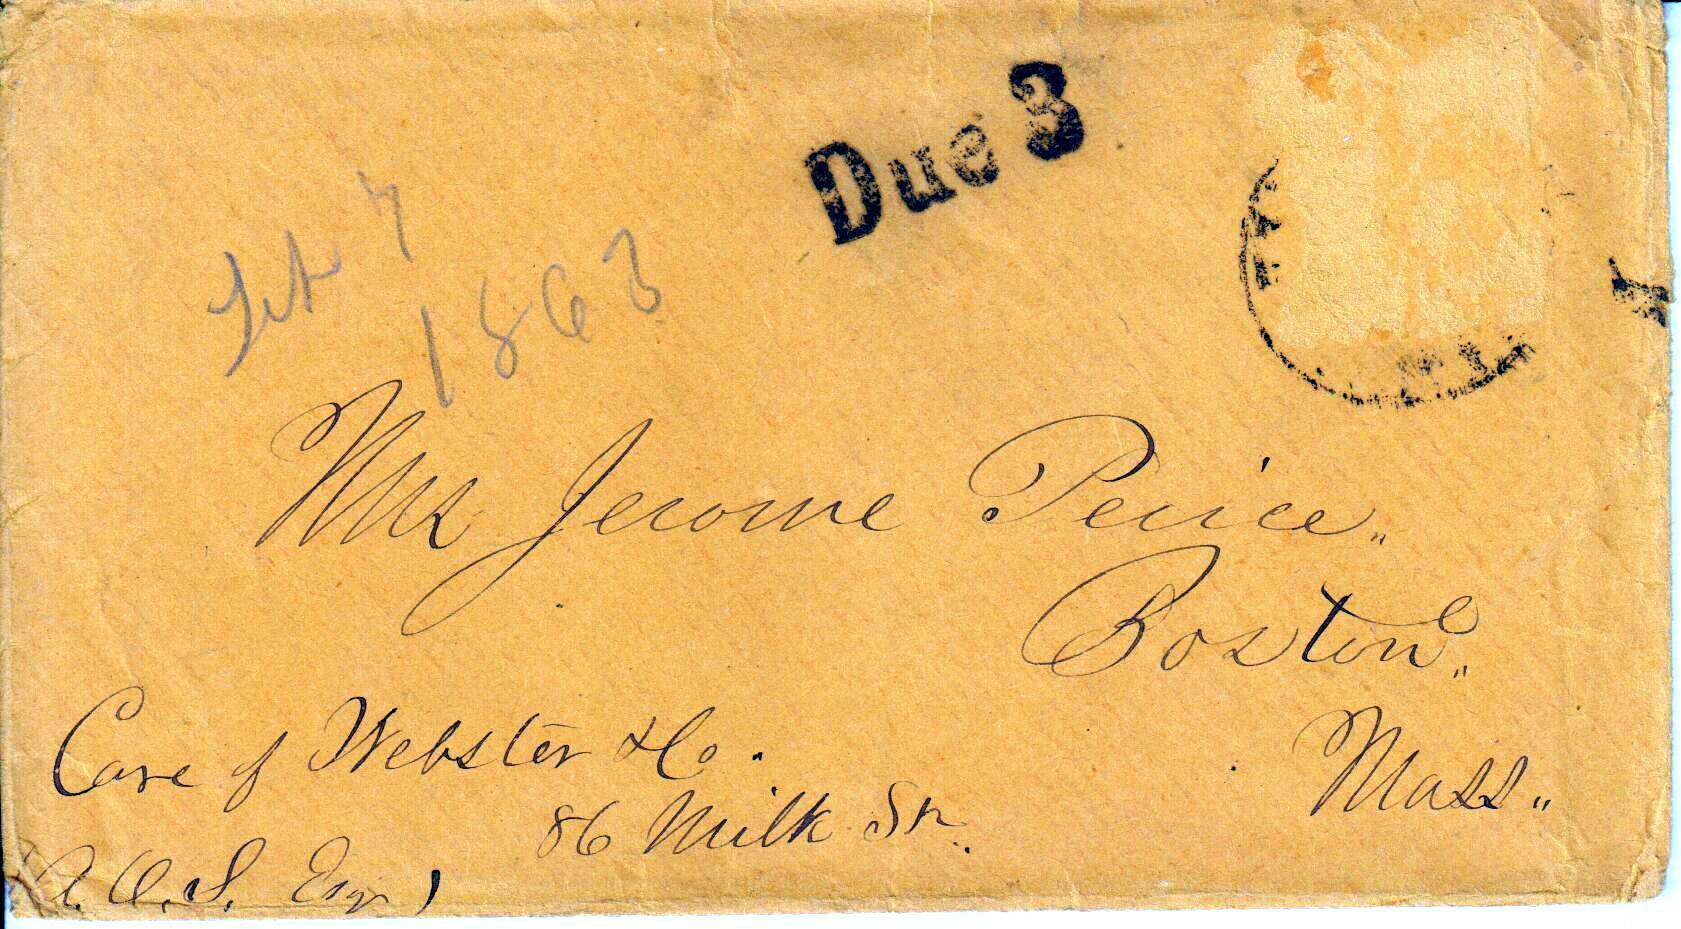 Due 3
Feb 7
1863
Mr Jerome Peirce.
Boston.
Mass.
Care of Webster & Co.
86 Milk St.
A. O. S. Esqr